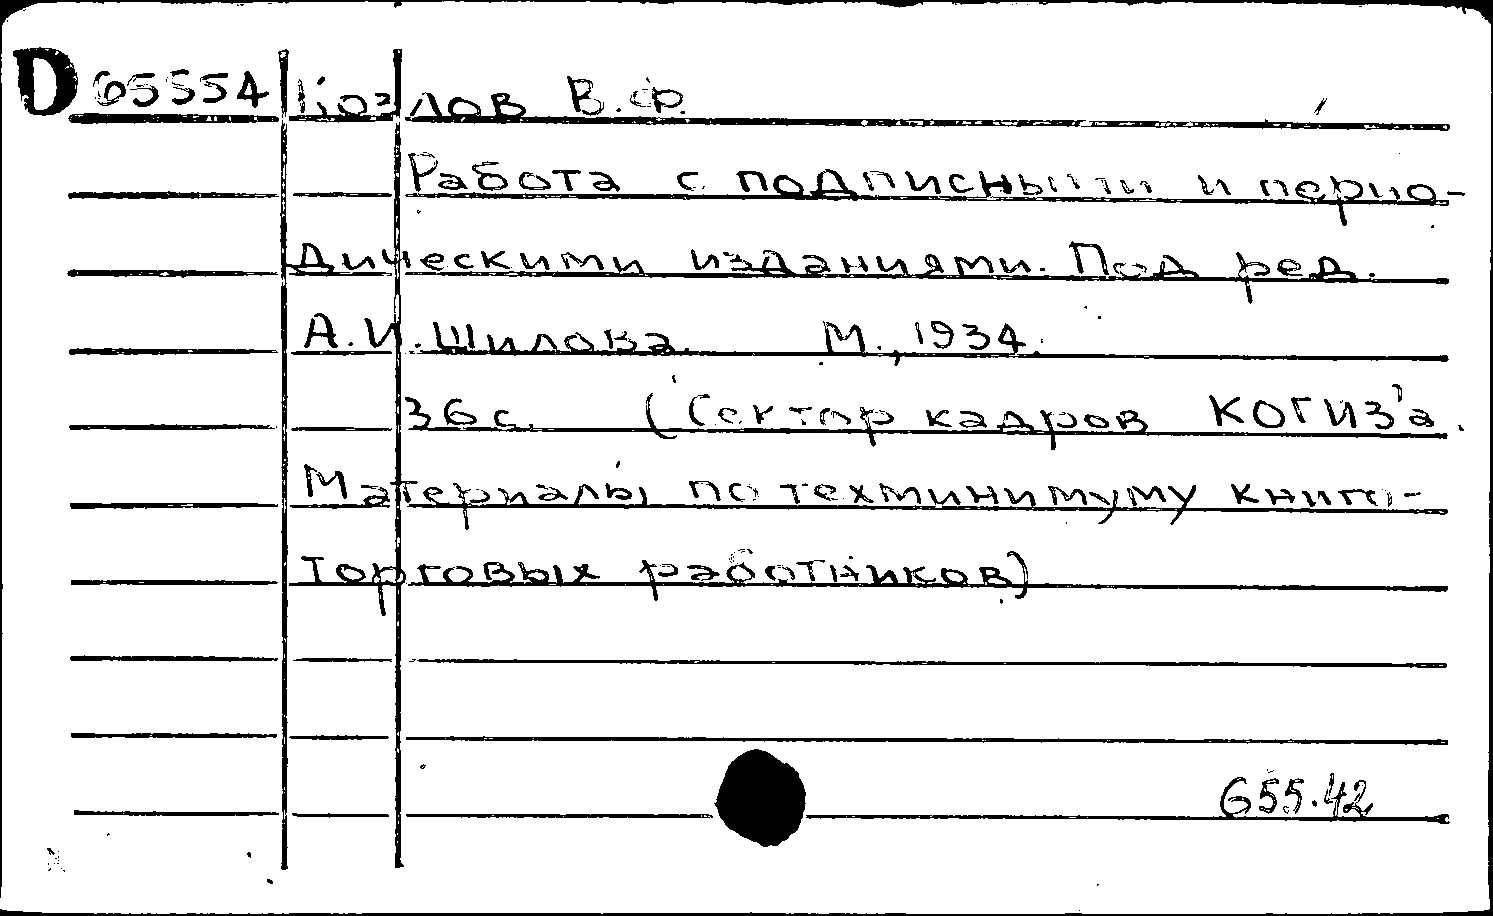 D 65554 Козлов В.Ф.
Работа с подписными и перио-
дическими изданиями. Под ред.
А.И.Шилова. М., 1934.
36 с. (Сектор кадров КОГИЗ'а.
Материалы по техминимуму книго-
торговых работников)
655.42